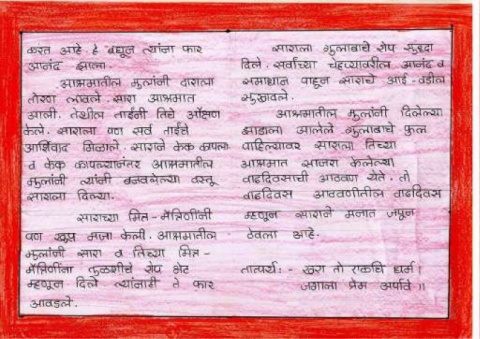 करत आहे. हे बघून त्यांना फार
आनंद झाला.
आश्रमातील मुलांनी दाराला
तोरण लावले. सारा आश्रमात
आली. तेथील ताईंनी तिचे औक्षण
केले. साराला पण सर्व ताईंचे
आर्शिवाद मिळाले. साराने केक कापला
व केक कापल्यानंतर आश्रमातील
मुलांनी त्यांनी बनवलेल्या वस्तू
साराला दिल्या.
साराच्या मित्र-मैत्रिणींनी
पण खूप मजा केली. आश्रमातील
मुलांनी सारा व तिच्या मित्र-
मैत्रिणींना तुळशीचे रोप भेट
म्हणून दिले त्यांनाही ते फार
आवडले.
साराला गुलाबाचे रोप सुद्धा
दिले. सर्वांच्या चेहऱ्यावरील आनंद व
समाधान पाहून साराचे आई-वडील
सुखावले.
आश्रमातील मुलांनी दिलेल्या
झाडाला आलेले गुलाबाचे फुल
पाहिल्यावर साराला तिच्या
आश्रमात साजरा केलेल्या
वाढदिवसाची आठवण येते. तो
वाढदिवस आठवणीतील वाढदिवस
म्हणून साराने मनात जपून
ठेवला आहे.
तात्पर्य:- खरा तो एकचि धर्म।
जगाला प्रेम अर्पावे॥